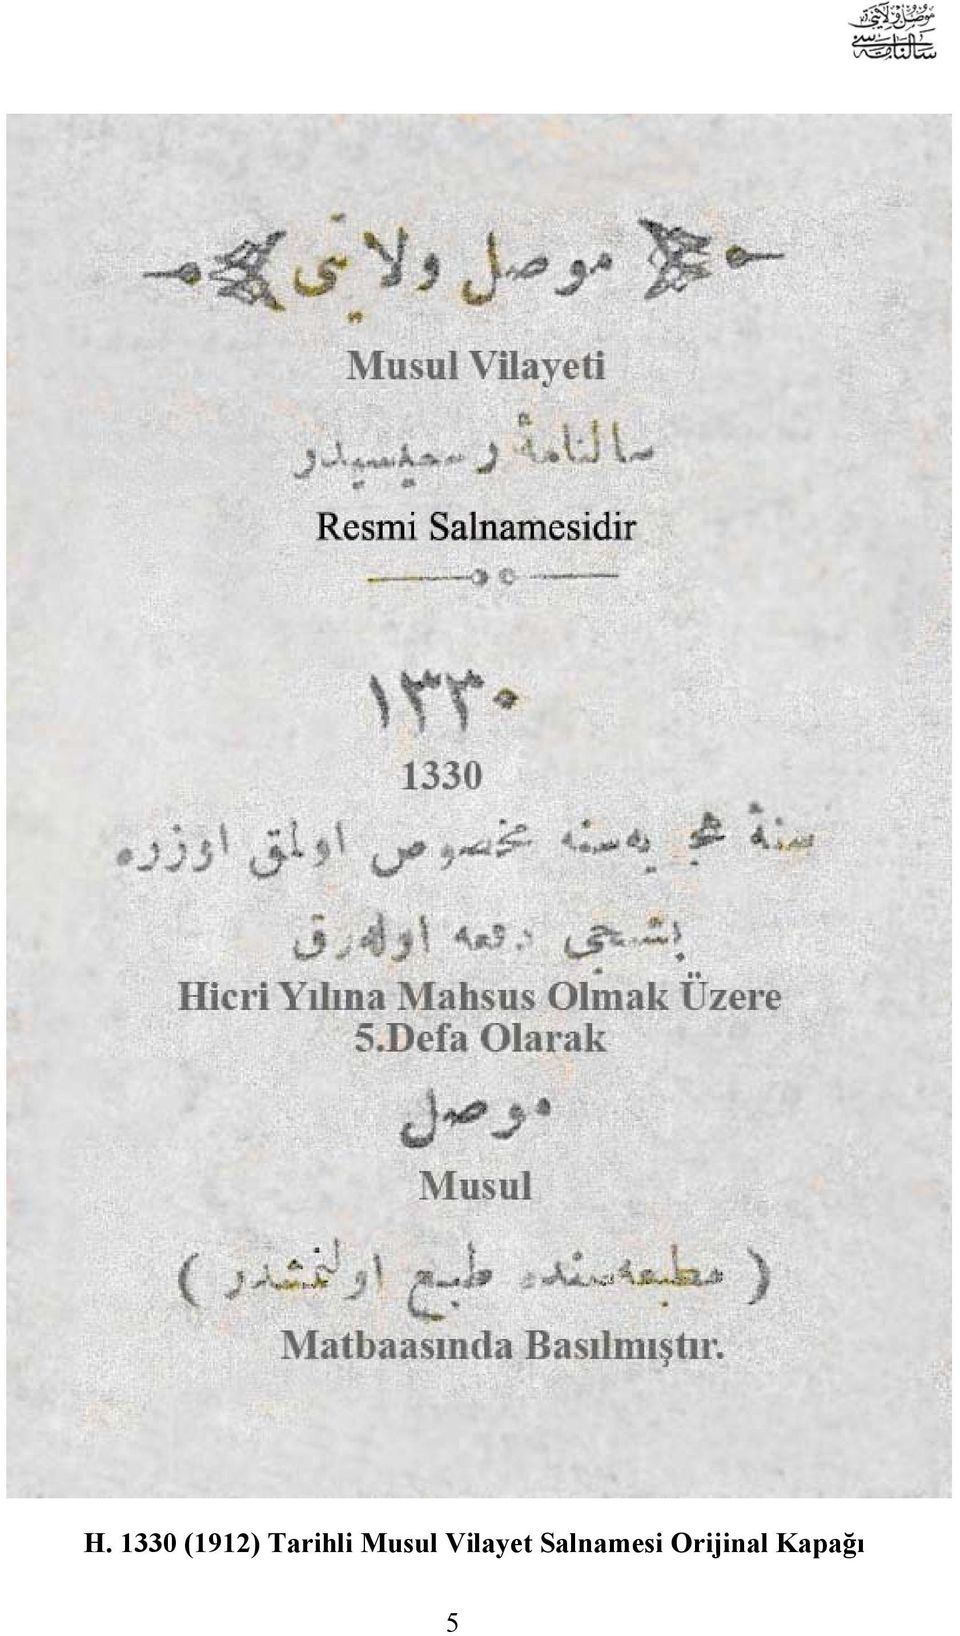 موصل ولايتى
سالنامه‌سى
موصل ولايتى
Musul Vilayeti
سالنامهٔ رسميسيدر
Resmi Salnamesidir
١٣٣٠
1330
سنهٔ هجريه‌سنه مخصوص اولمق اوزره
بشنجى دفعه اوله‌رق
Hicri Yılına Mahsus Olmak Üzere
5.Defa Olarak
موصل
Musul
( مطبعه‌سنده طبع اولنمشدر )
Matbaasında Basılmıştır.
H. 1330 (1912) Tarihli Musul Vilayet Salnamesi Orijinal Kapağı
5